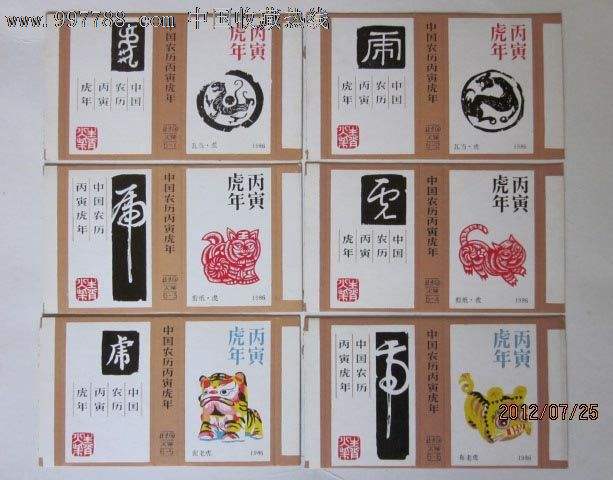 www.997788.com 中国收藏热线
中国
农历
丙寅
虎年
中国农历丙寅虎年
丙寅
虎年
瓦当·虎
1986
虎
中国
农历
丙寅
虎年
中国农历丙寅虎年
丙寅
虎年
瓦当·虎
1986
虎
中国农历
丙寅虎年
中国农历丙寅虎年
6-3
丙寅
虎年
剪纸·虎
1986
虎
中国
农历
丙寅
虎年
中国农历丙寅虎年
丙寅
虎年
剪纸·虎
1986
虎
中国
农历
丙寅
虎年
中国农历丙寅虎年
6-5
丙寅
虎年
布老虎
1986
中国农历
丙寅虎年
中国农历丙寅虎年
6-6
丙寅
虎年
布老虎
1986
2012/07/25